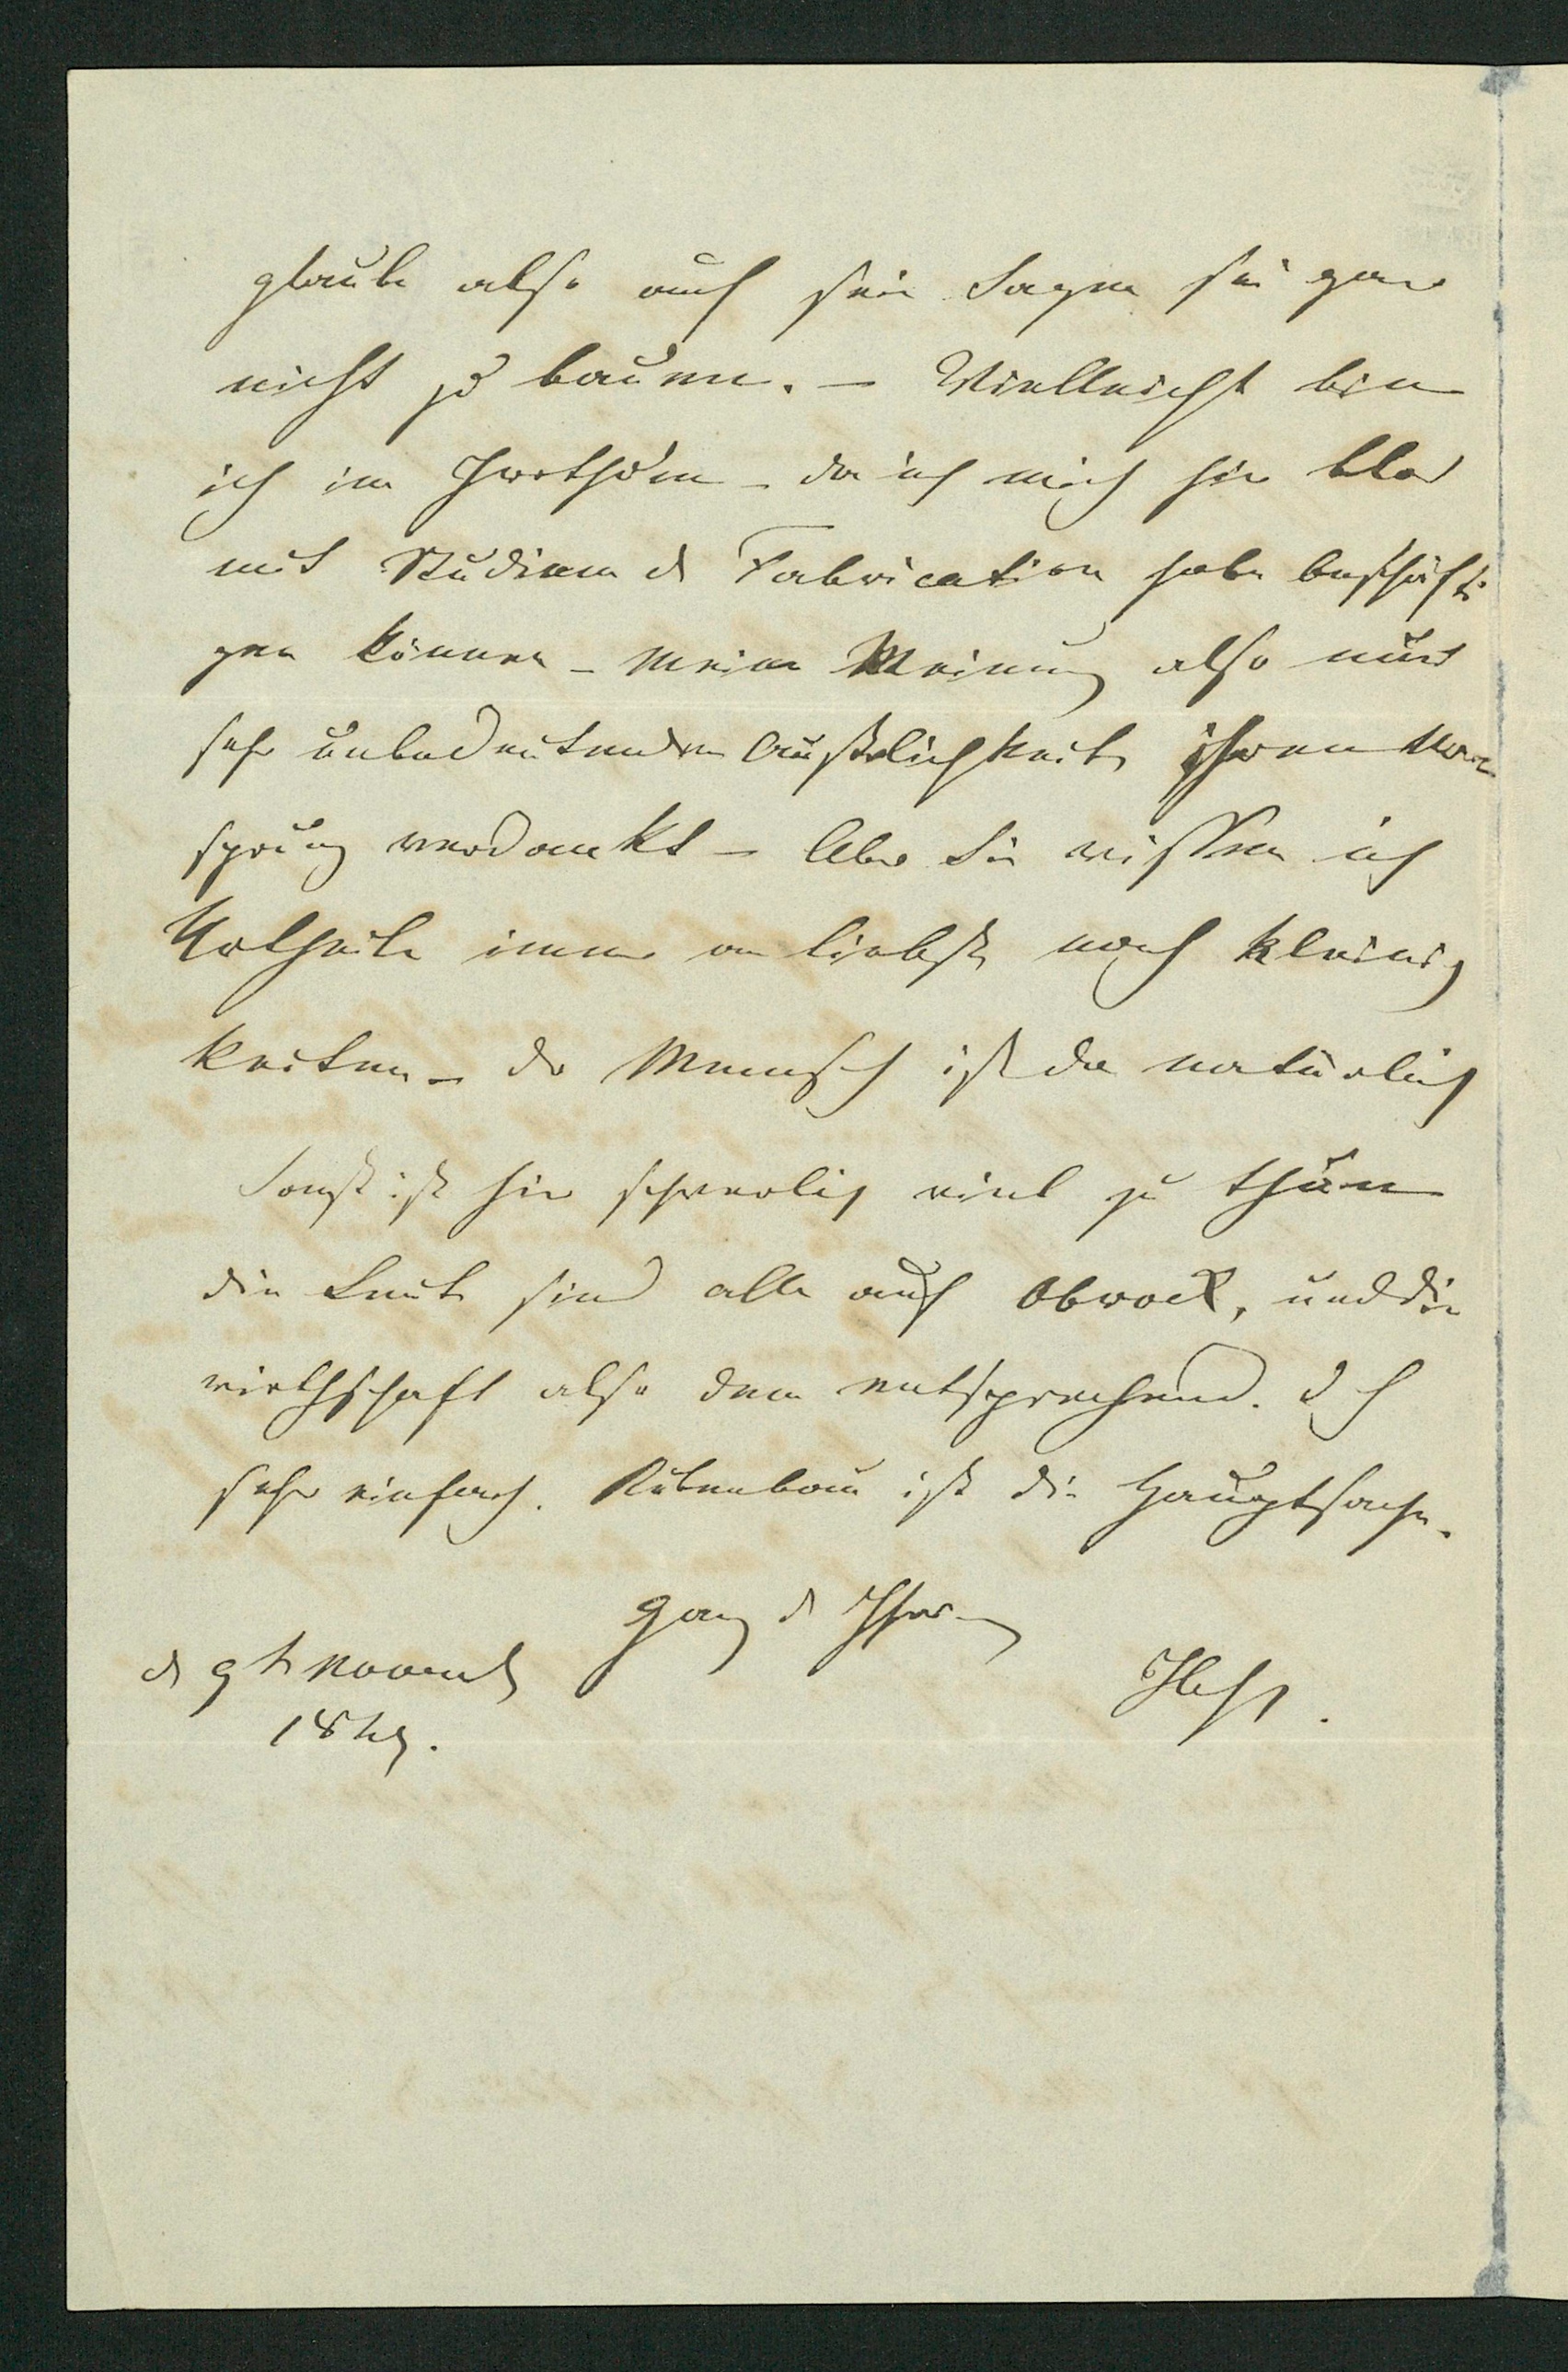 glaube also auf sein Sagen sei gar
nicht zu bauen. – Vielleicht bin
ich im Irrthum – da ich mich hier blos
mit Studium d Fabrication habe beschäfti
gen können – meine Meinung also nur
sehr unbedeutenden Äußerlichkeiten ihren Ur
sprung verdankt – Aber Sie wissen ich
Urtheile immer am liebsten nach Kleinig
keiten – da Mensch ist da natürlich
Sonst ist hier schwerlich viel zu thun
die Leute sind alle auf Obrock, und die
wirthschaft also dem entsprechend. d h
sehr einfach. Rübenbau ist die Hauptsache.
Ganz d Ihre
d 9t Novemb
18